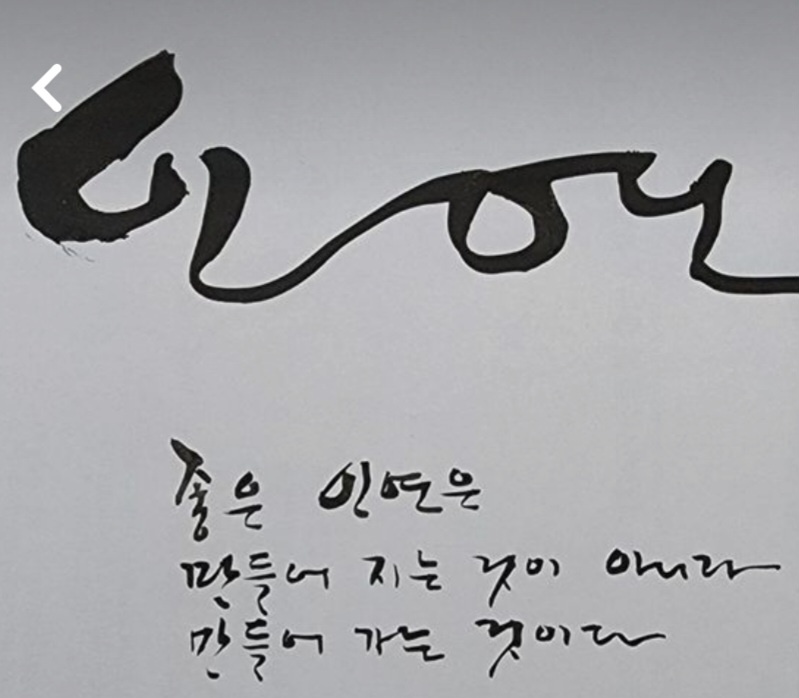 인연
좋은 인연은
만들어 지는 것이 아니라
만들어 가는 것이다